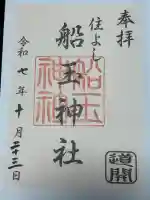 奉拝
住よし
船玉神社
船玉神社
令和七年十月二十三日
道開